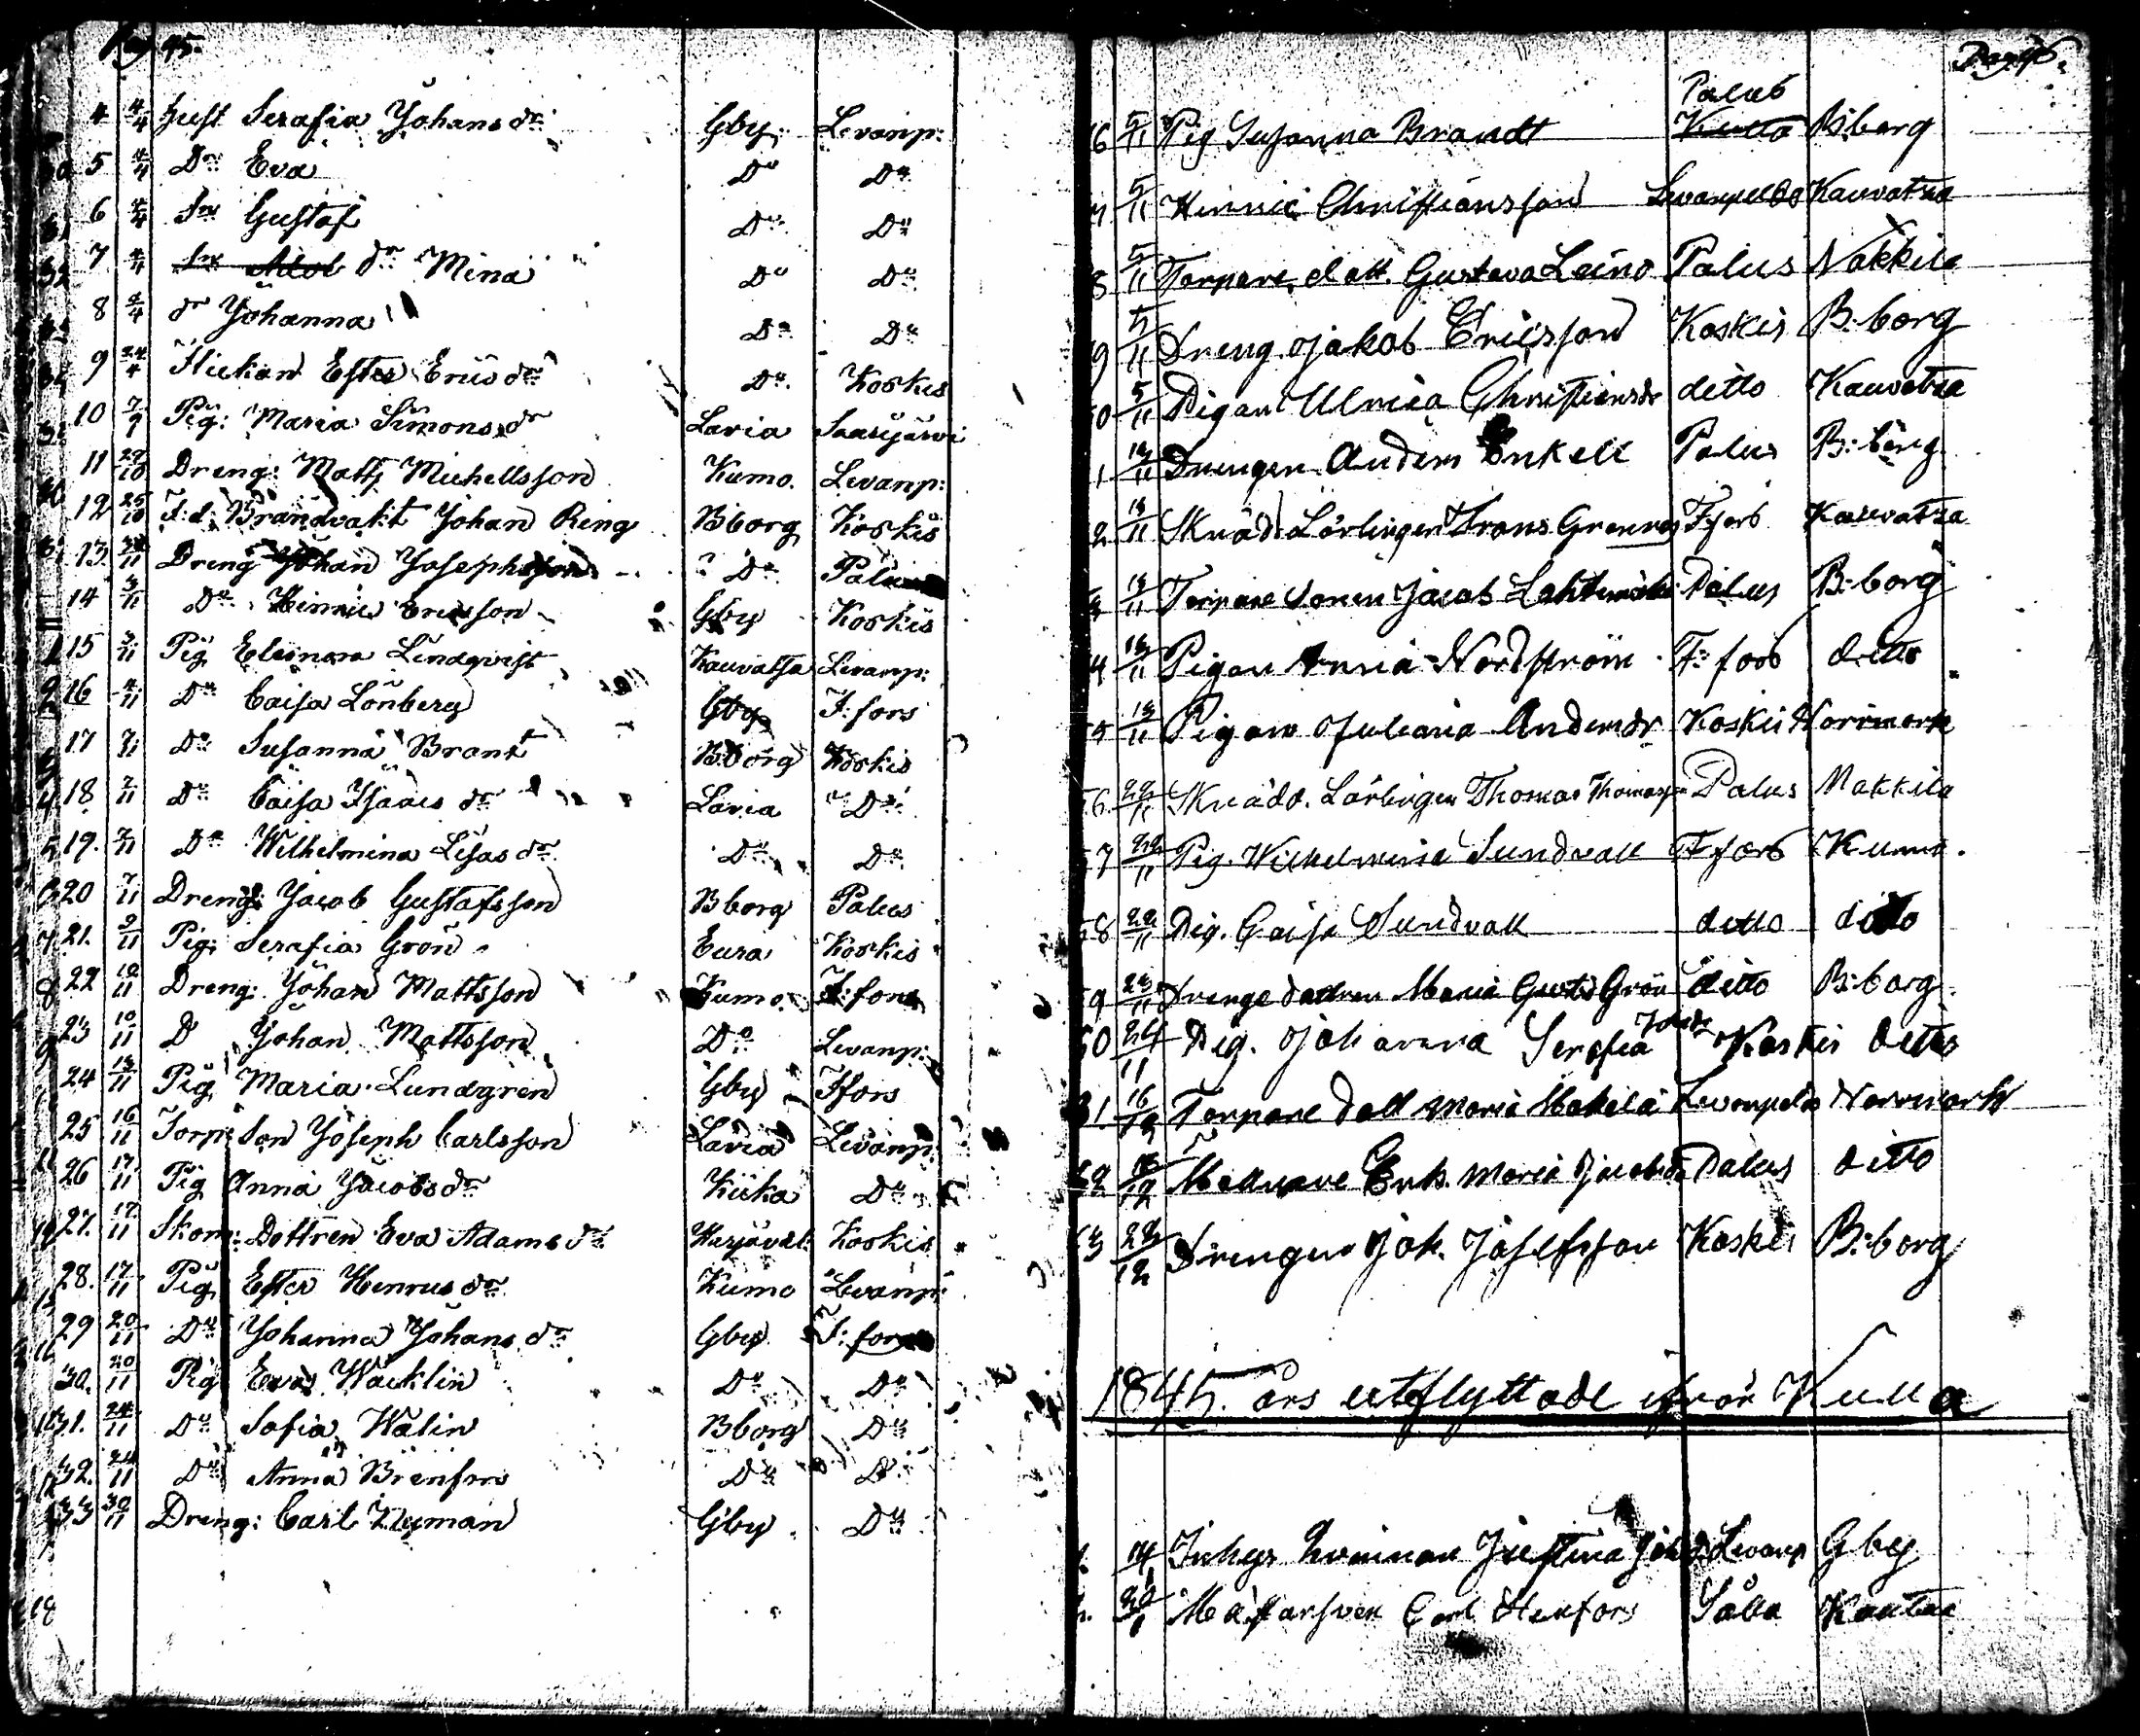 Pag 95.
4 4/4 Hust Serafia Johans dr Gby: Levanp:
5 4/4 Dr Eva Do Do
6 4/4 Sn Gustaf Do Do
7 4/4 dr Mina Do Do
8 4/4 dr Johanna Do Do
9 24/4 Flickan Ester Erics dr Do Koskis
10 7/9 Pig: Maria Simons dr Lavia Saarijärvi
11 29/10 Dreng: Matts Michellsson Kumo. Levanp:
12 25/10 F:d: Brandvakt Johan Ring Bborg Koskis
13. /11 Dreng Johan Josephsson Do Palus
14 3/11 Do Henric Ericsson Gby Koskis
15 3/11 Pig Eleonora Lindqvist Kauvatsa Levanp:
16 4/11 Do Caisa Lönberg Gby F:fors
17 7/11 Do Susanna Brant Bborg Koskis
18 7/11 Do Caisa Isaacs dr Lavia Do
19. 7/11 Do Wilhelmina Lisas dr Do Do
20 7/11 Dreng: Jacob Gustafsson Bborg Palus
21. 9/11 Pig: Serafia Grön Eura Koskis
22 10/11 Dreng: Johan Mattsson Kumo F:fors
23 10/11 D Johan Mattsson Do Levanp:
24 13/11 Pig Maria Lundgren Gby Ffors
25 16/11 Torp: Son Joseph Carlsson Lavia Levanp:
26 17/11 Pig Anna Jacobs dr Kiika Do
27. 17/11 Skom: Dottren Eva Adams dr Harjavalt: Koskis
28. 17/11 Pig Ester Henrics dr Kumo Levanp:
29 20/11 Do Johanna Johans dr Gby F:fors
30. 20/11 Pig Eva Wacklin Do Do
31. 24/11 Do Sofia Walin Bborg Do
32. 24/11 Do Anna Brenfors Do Do
33 30/11 Dreng: Carl Nyman Gby Do
Pag 96.
Palus
6 5/11 Pig Susanna Brandt Kulla B:borg
7 5/11 Henric Christiansson Levanpeldo Kauvatsa
8 5/11 Torpare dott. Gustava Leino Palus Nakkila
9 5/11 Dreng Jakob Ericsson Koskis B:borg
0 5/11 Pigan Ulrica Christiansdr ditto Kauvatsa
1 13/11 Drengen Anders Enkell Palus B:borg
2 13/11 Skrädd Lärlingen Frans Grannas Ffors Kauvatsa
3 13/11 Torpare Sonen Jacob Lahtimäki Palus B:borg
4 13/11 Pigan Anna Nordström F:fors ditto
5 13/11 Pigan Juliana Andersdr Koskis Norrmark
6 22/11 Skrädd. Lärlingen Thomas Thomasson Palus Nakkila
7 22/11 Pig. Wilhelmina Sundvall Ffors Kumo.
8 22/11 Pig. Caisa Sundvall ditto ditto
9 23/11 Drenge dottren Maria Gusts Grön ditto B:borg
60 24/11 Pig. Johanna Serafia Koskis ditto
61 16/12 Torpare dott Maria Mäkelä Levanpeldo Norrmark
62 /12 Enk. Maria Jacobsdr Palus ditto
63 23/12 Drengen Joh. Josefsson Koskis B:borg
1845. års utflyttade ifrån Kulla
1. 14/1 Inhys Qvinnan Justina Levanp Gby
2. Carl Stenfors